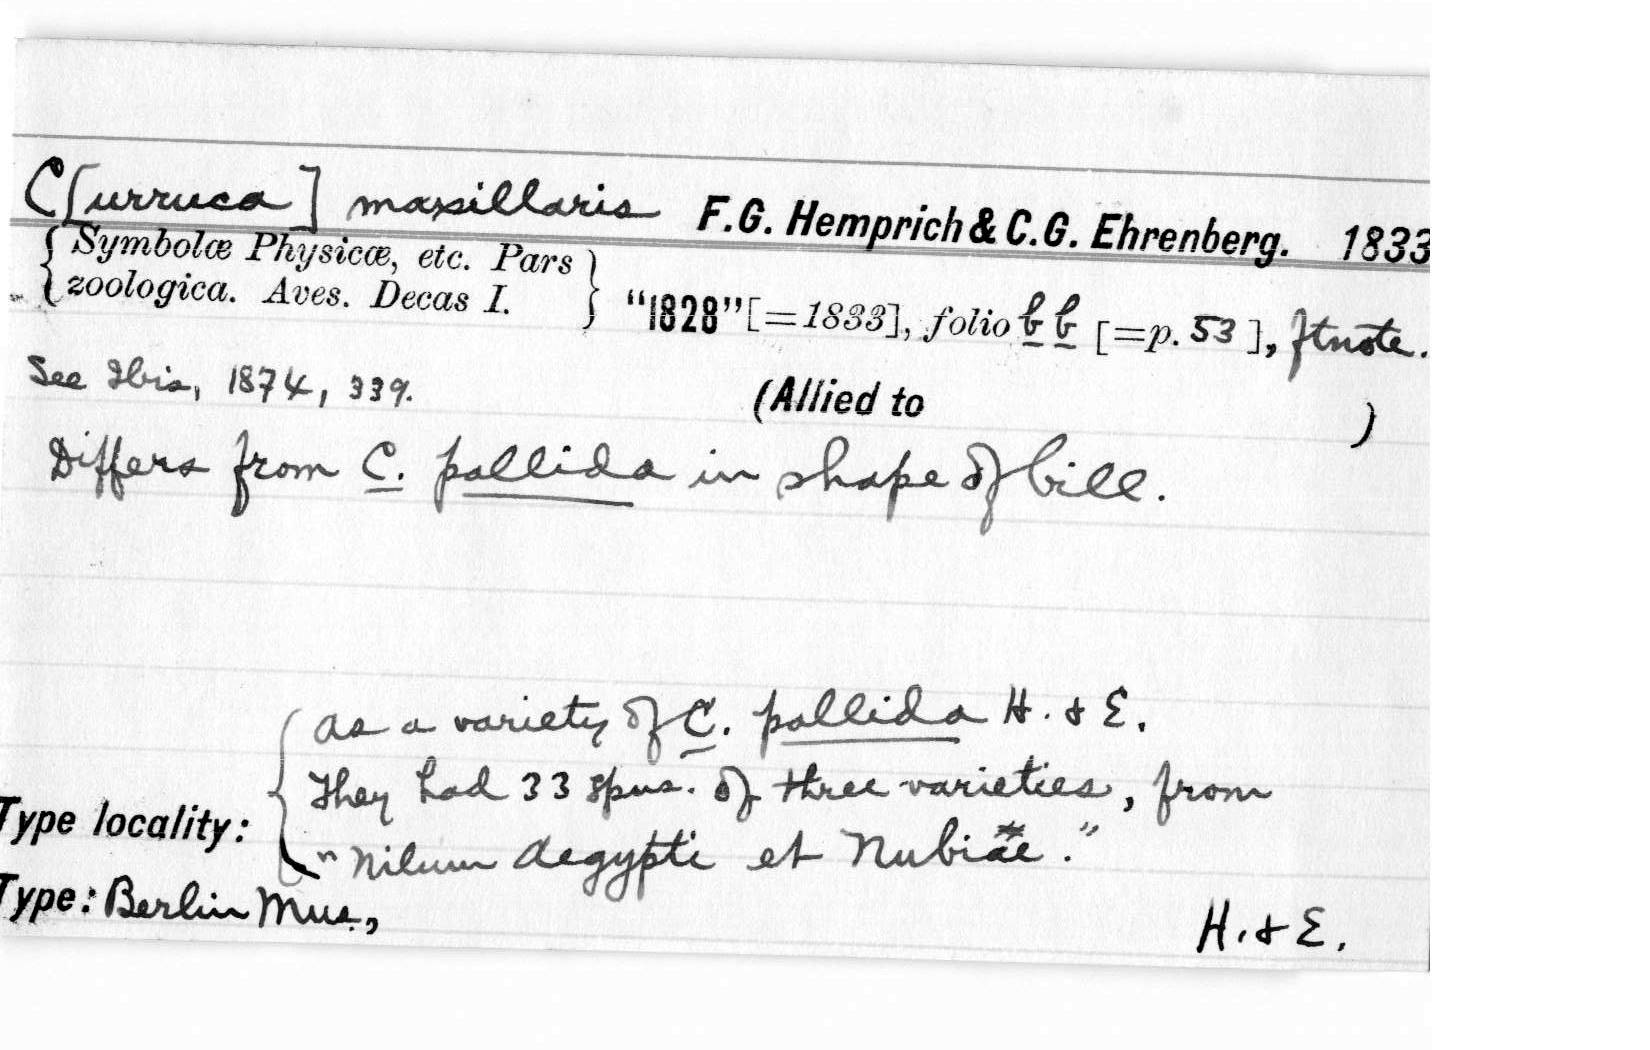 C[urruca] maxillaris F.G. Hemprich & C.G. Ehrenberg. 1833
{Symbolæ Physicæ, etc. Pars
zoologica. Aves. Decas I.} "1828" [=1833], folio bb [=p. 53], ftnote.
See Ibis, 1874, 339. (Allied to )
Differs from C. pallida in shape of bill.
as a variety of C. pallida H. & E.
They had 33 spns. of three varieties, from
Type locality: "Nilum Aegypti et Nubiae."
Type: Berlin Mus., H. & E.